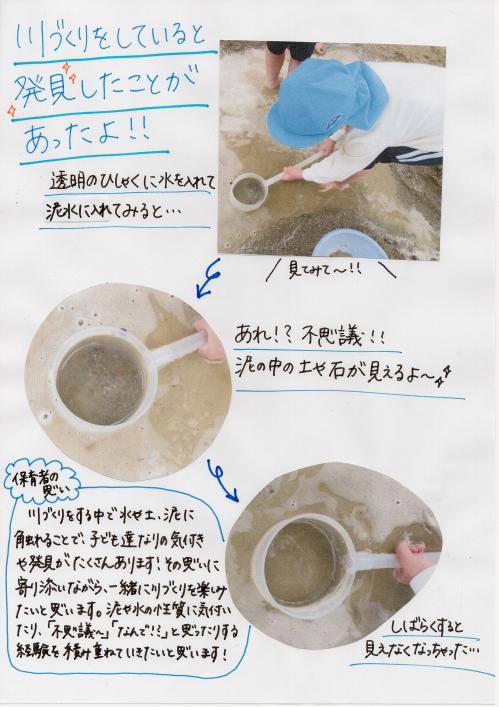 川づくりをしていると
発見したことが
あったよ!!
透明のひしゃくに水を入れて
泥水に入れてみると…
見てみて〜!!
あれ!?不思議!!
泥の中の土や石が見えるよ〜
保育者の
思い
川づくりをする中で水や土、泥に
触れることで、子ども達なりの気付き
や発見がたくさんあります!その思いに
寄り添いながら、一緒に川づくりを楽しみ
たいと思います。泥や水の性質に気付い
たり、「不思議〜」「なんで!?」と思ったりする
経験を積み重ねていきたいと思います!
しばらくすると
見えなくなっちゃった…